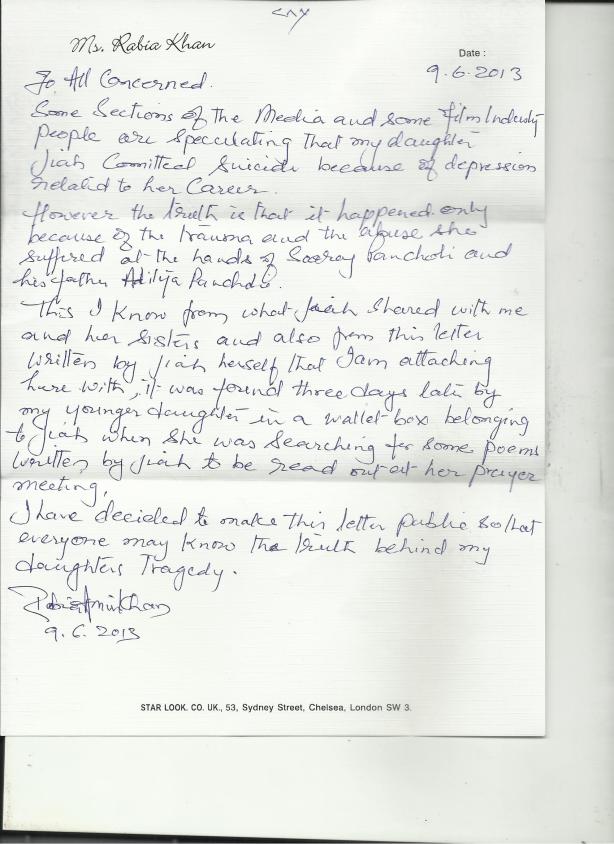 Ms. Rabia Khan
Date :
9.6.2013
To All Concerned.
Some Sections of the Media and some film Industry
people are speculating that my daughter
Jiah Comitted Suicide because of depression
related to her Career.
However the truth is that it happened only
because of the trauma and the abuse she
suffered at the hands of Sooraj Pancholi and
his father Aditya Pancholi.
This I know from what Jiah shared with me
and her sisters and also from this letter
written by Jiah herself that I am attaching
here with, it was found three days late by
my younger daughter in a wallet-box belonging
to Jiah when she was searching for some poems
written by Jiah to be read out at her prayer
meeting,
I have decided to make this letter public so that
everyone may know the truth behind my
daughters Tragedy.
Rabia Amin Khan
9.6.2013
STAR LOOK. CO. UK., 53, Sydney Street, Chelsea, London SW 3.